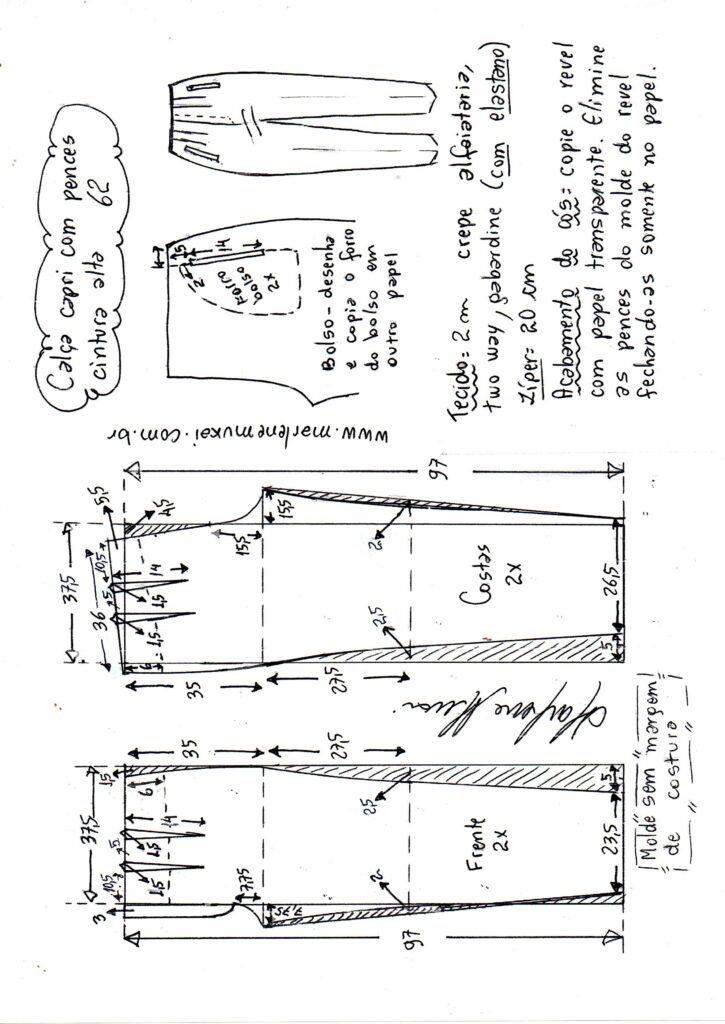 Calça capri com pences
cintura alta 62
1,5
14
2
2
Forro
bolso
2x
Bolso - desenha
e copia o forro
do bolso em
outro papel
Tecido = 2 m crepe alfaiataria,
two way, gabardine (com elastano)
Zíper = 20 cm
Acabamento do cós = copie o revel
com papel transparente. Elimine
as pences do molde do revel
fechando-as somente no papel.
www.marlenemukai.com.br
97
37,5
36
10,5
5,5
4,5
5
14
1,5
1,5
6
15,5
15,5
35
27,5
2
2,5
Costas
2x
26,5
5
97
37,5
3
10,5
5
1,5
6
14
1,5
1,5
7,75
7,75
35
27,5
2,5
2
Frente
2x
23,5
5
Molde sem margem
de costura